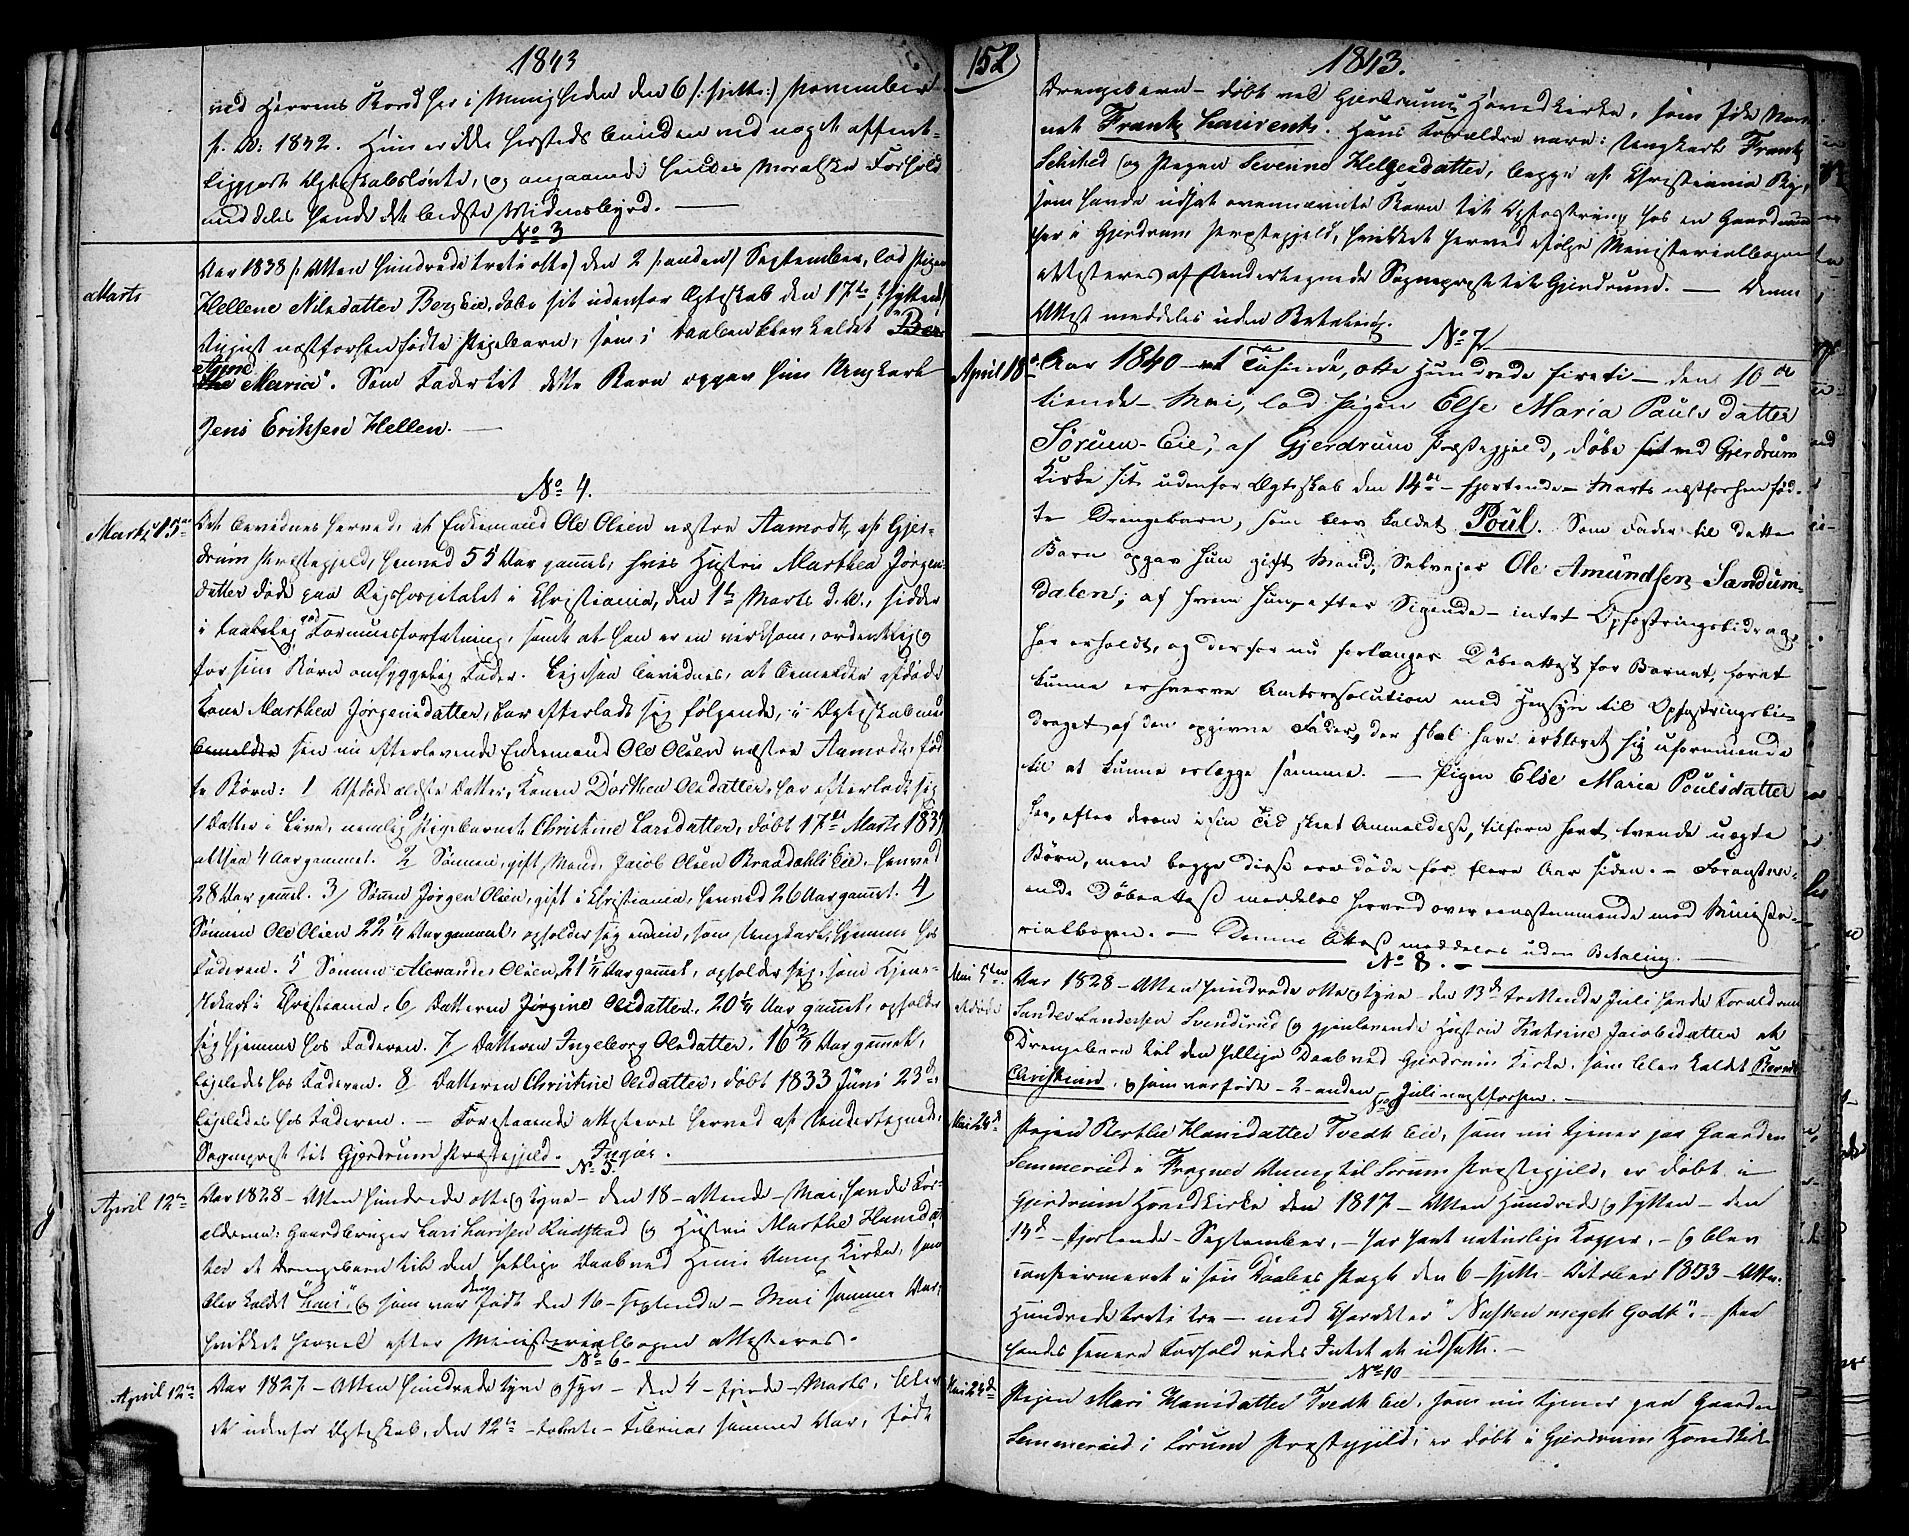 1843
ved Herrens Bord her i Menigheden den 6 /:sjette:/ November
f. A: 1842. Hun er ikke hersteds bunden ved noget offent-
liggjort Ægteskabsløvte, og angaaende hendes Moralske Forhold
meddeles hende det bedste Vidnesbyrd. —
No 3
Marts
Aar 1838 /: Atten Hundrede treti otte/ den 2 /: anden/ September, lod Pigen
Hellene Nilsdatter Berg Eie, døbe sit udenfor Ægteskab den 17de /: syttende/
August næstforhen fødte Pigebarn, som i Daaben blev kaldet
Maria". Som Fader til dette Barn opgav hun Ungkarl
Jens Eriksen Hellen. —
No 4.
Marts 15de
Det bevidnes herved, at Enkemand Ole Olsen vestre Aamodt, af Gjer-
drum Præstegjeld, henved 55 Aar gammel, hvis Hustru Marthea Jørgens-
datter døde paa Rigshospitalet i Christiania, den 1ste Marts d.A., sidder
i taalelig god Formuesforfatning, samt at han er en virksom, ordentlig og
for sine Børn omhyggelig Fader. Ligesaa bevidnes, at bemeldte afdøde
Kone Marthea Jørgensdatter, har efterladt sig følgende, i Ægteskab med
bemeldte sin nu efterlevende Enkemand Ole Olsen vestre Aamodt, fød-
te Børn: 1 Afdøde ældste Datter, Konen Dorthea Olsdatter, har efterladt sig
1 Datter i Live, nemlig Pigebarnet Christine Larsdatter, døbt 17de Marts 1839
altsaa 4 Aar gammel. 2/ Sønnen, gift Mand, Jacob Olsen Braadahls Eie, henved
28 Aar gamel. 3/ Sønnen Jørgen Olsen, gift i Christiania, henved 26 Aar gamel. 4/
Sønnen Ole Olsen 22 1/4 Aar gammel, opholder sig endnu, som Ungkarl, hjemme hos
Faderen. 5 Sønnen Alexander Olsen, 21 1/4 Aar gamel, opholder sig, som Tjene-
stekarl i Christiania, 6/ Datteren Jørgine Olsdatter, 20 1/4 Aar gamel, opholder
sig hjemme hos Faderen. 7/ Datteren Ingeborg Olsdatter, 16 3/4 Aar gamel,
ligeledes hos Faderen. 8/ Datteren Christine Olsdatter, døbt 1833 Juni 23de,
ligeledes hos Faderen. — Forestaaende attesteres herved af Undertegnede,
Sogneprest til Gjerdrum Præstegjeld.
No 5.
April 12te
Aar 1828 — Atten Hundrede otte og tyve — den 18 — attende — Mai, havde For-
ældrene: Gaardbruger Lars Larsen Rudstad og Hustru Marthe Hansdat-
ter et Drengebarn til den hellige Daab ved Heni Annex Kirke, som
blev kaldet "Lars", og som var født den 16 — sextende — Mai samme Aar,
hvilket herved efter Ministerialbogen attesteres.
No 6 —
April 12te
Aar 1827 — Atten Hundrede tyve og syv — den 4 — fjerde — Marts, blev
et udenfor Ægteskab, den 12te — tolvte — Februar samme Aar, født
152
1843.
Drengebarn — døbt ved Gjerdrums Hovedkirke, som fik Nav-
net Frantz Laurents. Hans Forældre vare: Ungkarl Frantz
og Pigen Severine Helgesdatter, begge af Christiania By,
som havde udsat ovennævnte Barn til Opfostring hos en Gaardmand
her i Gjerdrum Præstegjeld, hvilket herved ifølge Ministerialbogen
attesteres af Undertegnede Sogneprest til Gjerdrum. — Denne
Attest meddeles uden Betaling.
No 7/
April 18de
Aar 1840 — et Tusinde, otte Hundrede fireti — den 10de
tiende — Mai, lod Pigen Else Maria Pauls datter
Sørum-Eie, af Gjerdrum Præstegjeld, døbe ved Gjerdrum
Kirke sit udenfor Ægteskab den 14de — fjortende — Marts næstforhen fød-
te Drengebarn, som blev kaldet Poul. Som Fader til dette
Barn opgav hun gift Mand, Selvejer Ole Amundsen Sandum-
dalen; af hvem hun — efter Sigende — intet Opfostringsbidrag
har erholdt, og derfor nu forlanger Døbeattest for Barnet, foråt
kunne erhverve Amtsresolution med Hensyn til Opfostringsbi-
draget af den opgivne Fader, der skal have erklæret sig uformuende
til at kunne erlægge samme. — Pigen Else Maria Poulsdatter
har, efter derom i sin Tid skeet Anmeldelse, tilforn havt tvende uægte
Børn, men begge disse ere døde for flere Aar siden. — Foranstaa-
ende Døbeattest meddeles herved overensstemmende med Ministe-
rialbogen. — Denne Attest meddeles uden Betaling. —
No 8. —
Mai 5te
Aar 1828 — Atten Hundrede otte og tyve — den 13de trettende Juli havde Forældrene
Sander Sandersen Svenderud og gjenlevende Hustru Katrine Jacobsdatter et
Drengebarn til den hellige Daab ved Gjerdrum Kirke, som blev kaldet
Christian, og som var født — 2 — anden Juli næstforhen. —
No 9
Mai 24de
Pigen Berthe Hansdatter Tvedt Eie, som nu tjener paa Gaarden
Lemmerud i Frogner Annex til Sørum Præstegjeld, er døbt i
Gjerdrum Hovedkirke den 1817 — Atten Hundrede og sytten — den
14de — fjortende — September, — har havt naturlige Kopper, — og blev
confirmeret i sin Daabes Pagt den 6 — sjette — October 1833 — Atten
Hundrede treti tre — med Charakter "Næsten meget Godt". — Paa
hendes senere Forhold vides Intet at udsætte. —
No 10
Mai 24de
Pigen Mari Hansdatter Tvedt Eie, som nu tjener paa Gaarden
Lemmerud i Sørum Præstegjeld, er døbt i Gjerdrum Hovedkirke